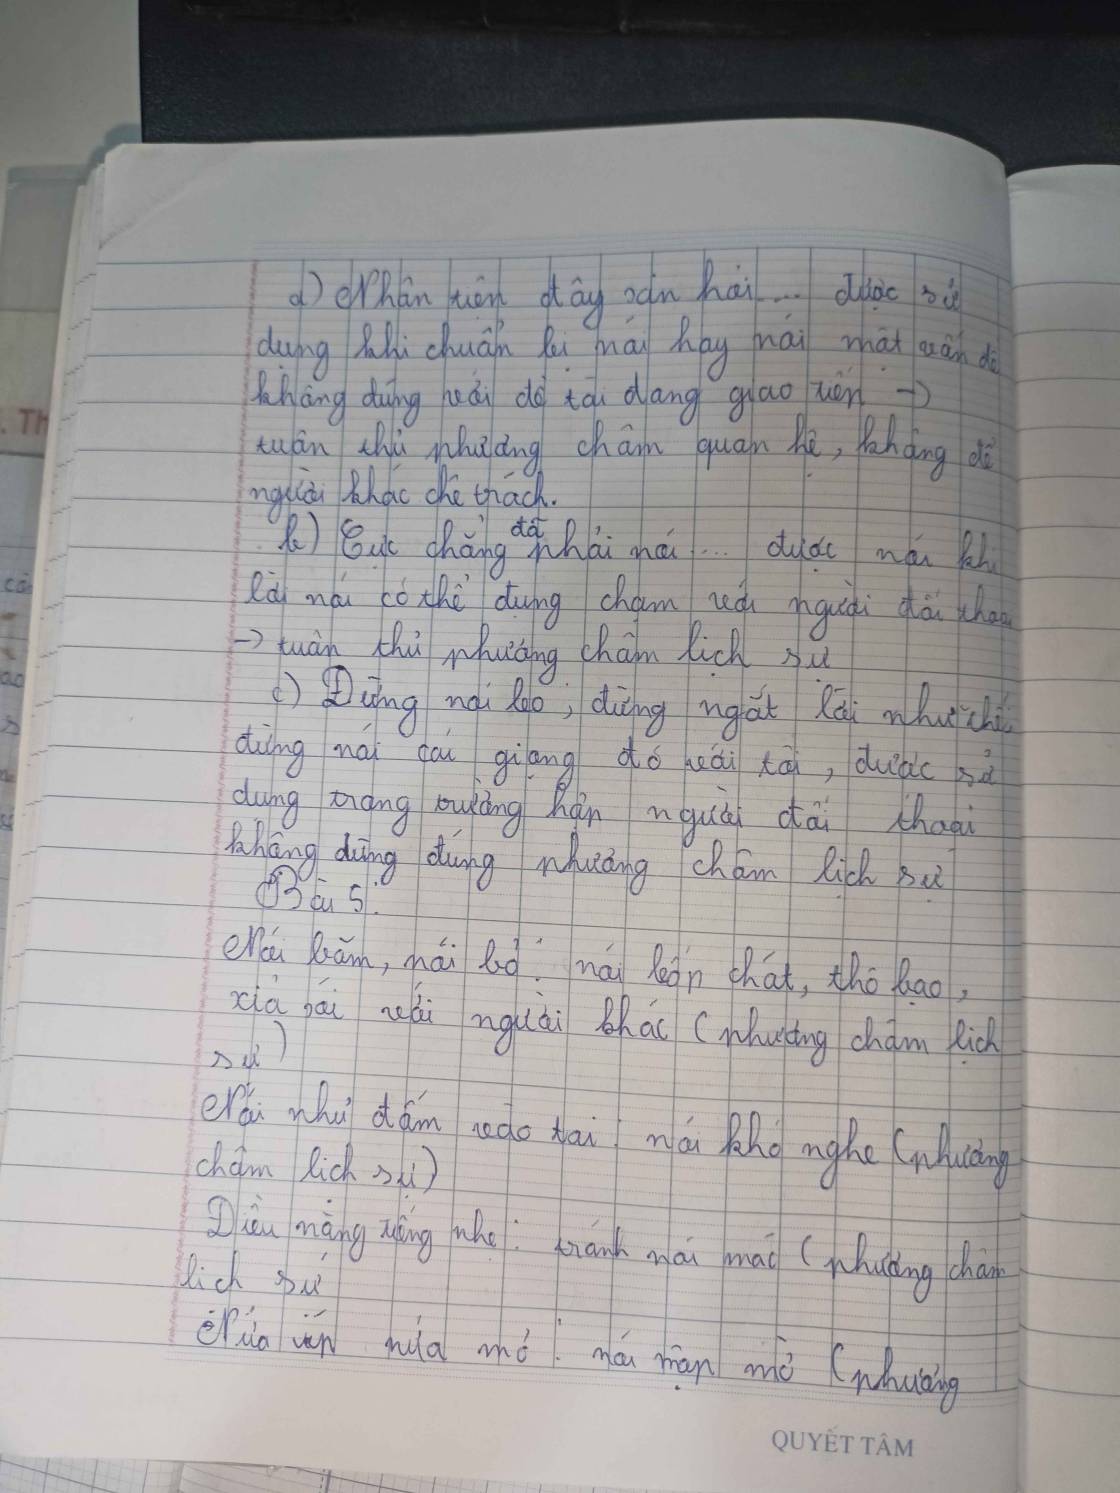 a) Nhân tiện đây xin hỏi... được sử
dụng khi chuẩn bị nói hay nói một vấn đề
không đúng với đề tài đang giao tiến ->
tuân thủ phương châm quan hệ, không để
người khác chê trách.
b) Cực chẳng đã phải nói... được nói khi
lời nói có thể đụng chạm với người đối thoại
-> tuân thủ phương châm lịch sự
c) Đừng nói leo, đừng ngắt lời như thế,
đừng nói cái giọng đó với tôi, được sử
dụng trong trường hợp người đối thoại
không dùng đúng phương châm lịch sự
Bài 5:
Nói băm, nói bổ: nói bốp chát, thô bạo,
xỉa xói với người khác (phương châm lịch
sự)
Nói như đấm vào tai: nói khó nghe (phương
châm lịch sự)
Điều nặng tiếng nhẹ: tránh nói móc (phương châm
lịch sự
Nửa úp nửa mở: nói mập mờ (phương
QUYẾT TÂM